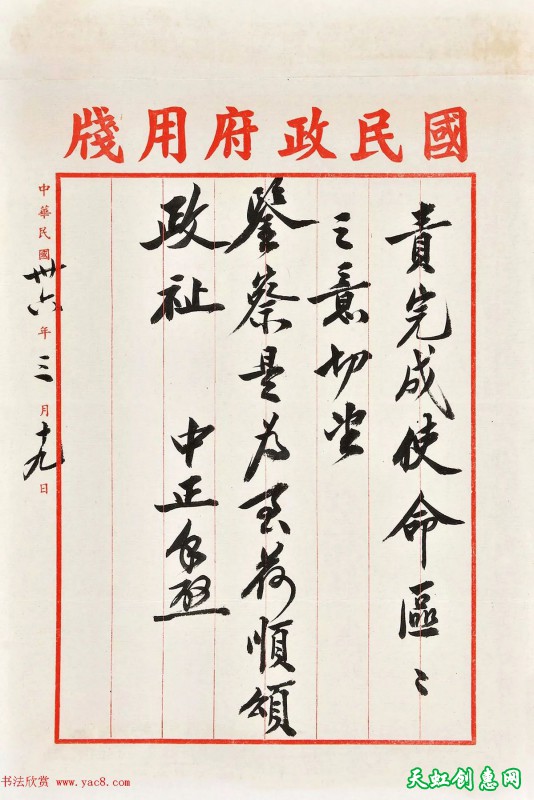 國民政府用牋
責完成使命區〻
之意切望
鑒察是為至荷順頌
政祉　中正手啟
中華民國卅六年三月十九日
书法欣赏 www.yac8.com
天虹创意网